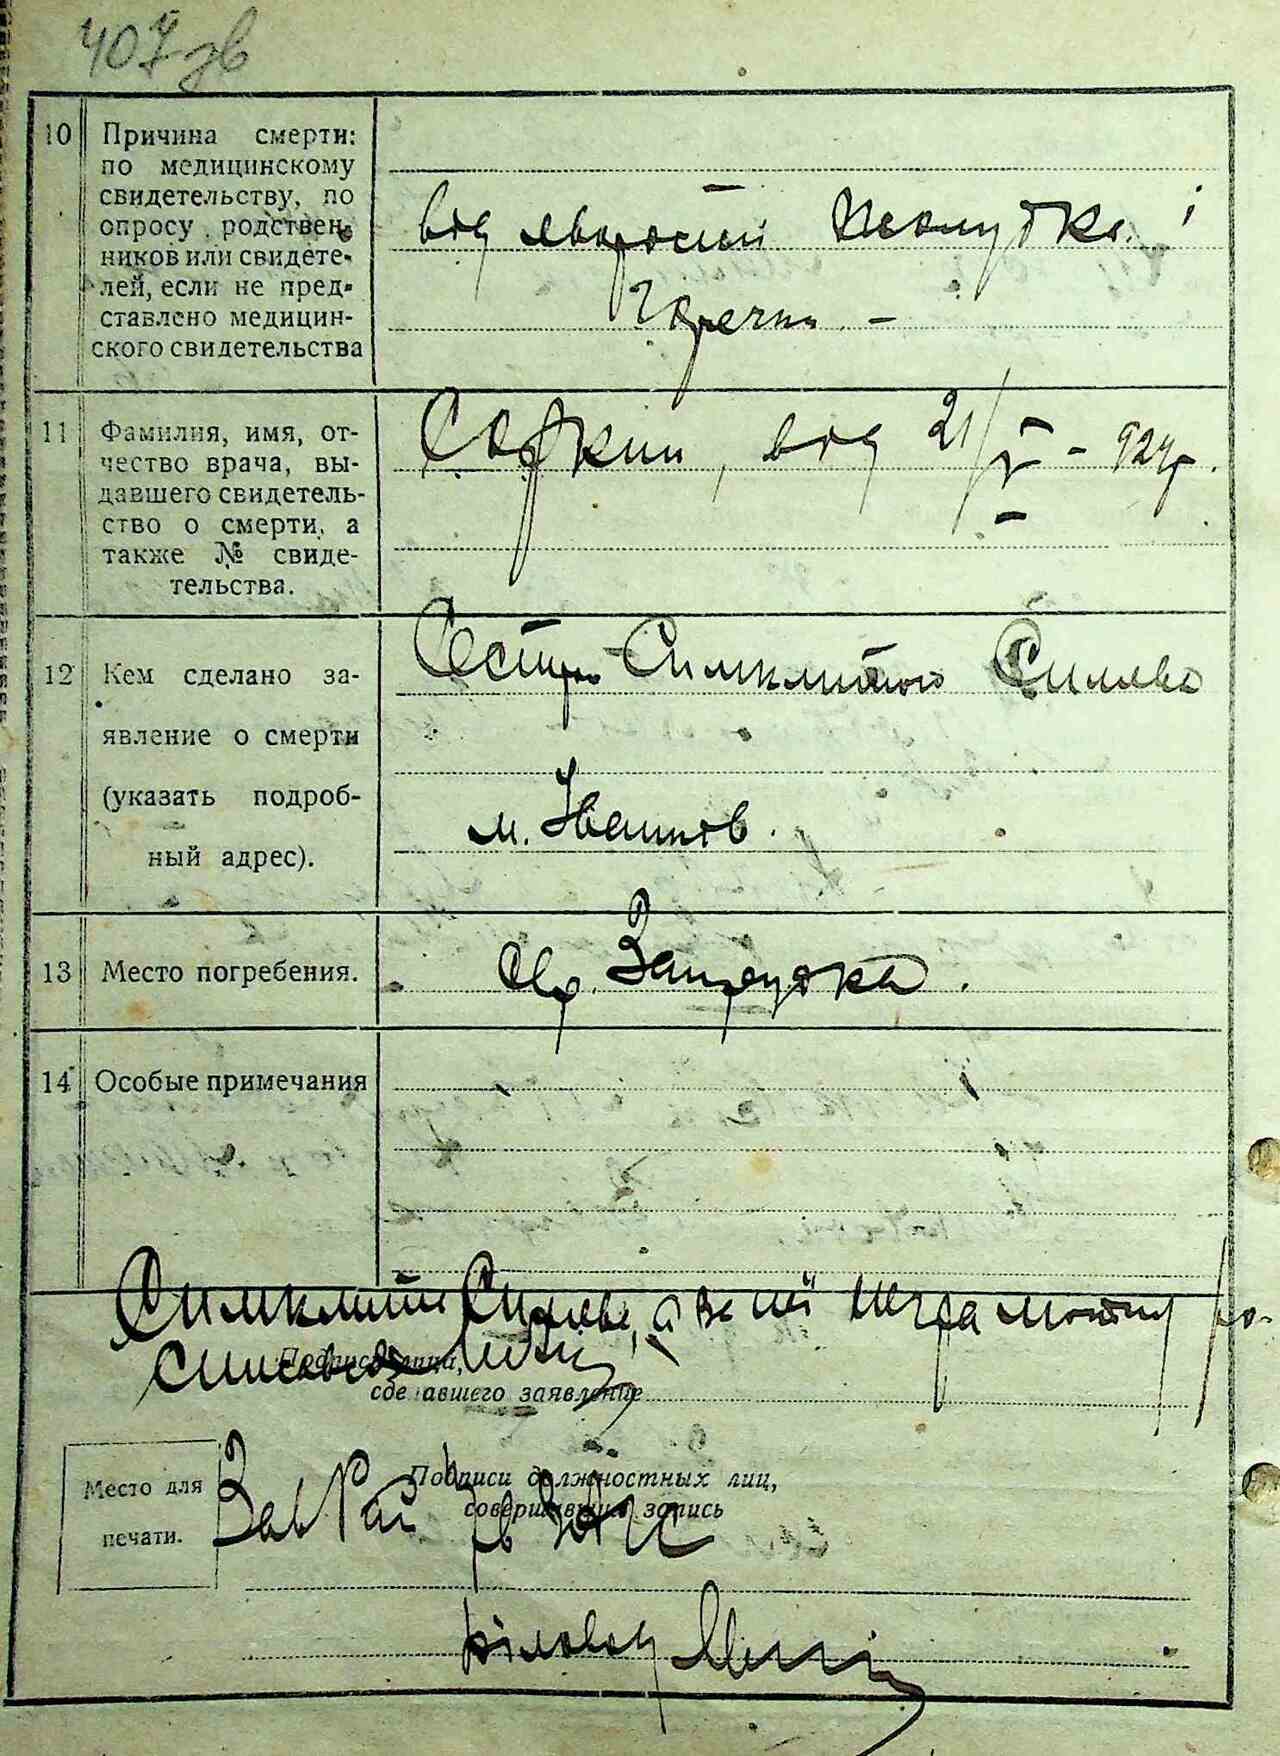 407 зв
10 Причина смерти:
по медицинскому
свидетельству, по
опросу родствен-
ников или свидете-
лей, если не пред-
ставлено медицин-
ского свидетельства
від хворости жолудка і
горячки –
11 Фамилия, имя, от-
чество врача, вы-
давшего свидетель-
ство о смерти, а
также № свиде-
тельства.
Соркин, від 21/V – 924р.
12 Кем сделано за-
явление о смерти
(указать подроб-
ный адрес).
Сестра
м. Іванків.
13 Место погребения.
14 Особые примечания
а за неї неграмотну ро-
Подпись лица,
сделавшего заявление
Место для
печати.
Подписи должностных лиц,
совершивших запись
Зав
Діловод